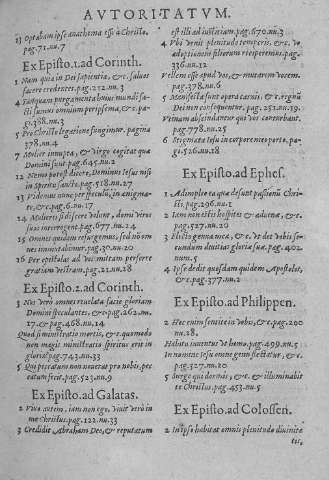 AVTORITATVM.
Optabam ipse anathema esse à Christo.
pag.71.nu.7
Ex Episto.1.ad Corinth.
1 Nam quia in Dei sapientia, &c. saluos
facere credentes.pag.212.nu.3
4 Tanquam purgamenta huius mundi fa-
cti sumus omnium peripsema, &c. pa-
g.308.nu.3
5 Pro Christo legatione fungimur. pagina
378.nu.4
7 Mulier innupta, & virgo cogitat quæ
Domini sunt pag.645.nu.2
12 Nemo potest dicere, Dominus Iesus nisi
in Spiritu sancto.pag.518.nu.27
13 Videmus nunc per speculũ, in ænigma-
te, &c.pag.6.nu.17
14 Mulieres si discere volunt, domi viros
suos interrogent.pag.677.nu.24
15 Omnes quidem resurgemus, sed nõ om-
nes immutabimur.pag.20.nu.20
16 Per epistolas ad vos mittam perferre
gratiam vestram.pag.21.nu.28
Ex Episto.2.ad Corinth.
3 Nos verò omnes reuelata facie gloriam
Domini speculantes, &c.pag.262.nu.
17.& pag.468.nu.14
Quod si ministratio mortis, &c. quomodo
non magis ministratio spiritus erit in
gloria?pag.743.nu.33
5 Qui peccatum non nouerat pro nobis, pec-
catum fecit.pag.523.nu.9
Ex Episto.ad Galatas.
2 Viuo autem, iam non ego, viuit verò in
me Christus.pag.102.nu.33
3 Credidit Abraham Deo, & reputatum
est illi ad iustitiam.pag.670.nu.3
4 Vbi venit plenitudo temporis, &c. vt
adoptionem filiorum reciperemus.pag.
336.nu.12
Vellem esse apud vos, & mutarem vocem.
pag.378.nu.6
5 Manifesta sunt opera carnis, & regnũ
Dei non consequentur.pag.251.nu.39.
Vtinam abscindantur qui vos conturbant.
pag.778.nu.25
6 Stigmata Iesu in corpore meo porto. pa-
g.526.nu.18
Ex Episto.ad Ephes.
1 Adimpleo ea quæ desunt passionũ Chri-
sti.pag.296.nu.1
2 Iam non estis hospites & aduenæ, &c.
pag.527.nu.20
3 genua mea, &c. vt det vobis se-
cundum diuitias gloriæ suæ.pag.402.
num.5
4 Ipse dedit quosdam quidem Apostolos,
&c.pag.377.nu.2
Ex Episto.ad Philippen.
2 Hoc enim sentite in vobis, &c.pag.200
nu.28.
Habitu inuentus vt homo.pag.499.nu.5
In nomine Iesu omne genu flectatur, &c.
pag.527.nu.20
5 Surge qui dormis, &c. & illuminabit
te Christus.pag.453.nu.5
Ex Episto.ad Colossen.
2 In ipso habitat omnis plenitudo diuinita
tis,